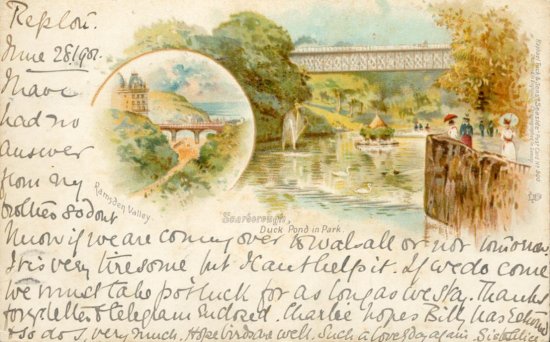 Repton.
June 28/901.
I have
had no
answer
from my
brother so dont
know if we are coming over to walsall or not tomorrow
It is very tiresome but I cant help it. If we do come
we must take potluck for as long as we stay. Thanks
for yr letter & telegram enclosed. Charlie hopes Bill has
& so do I, very much. Hope birds are well. Such a lovely day again.
Ramsden Valley.
Scarborough,
Duck Pond in Park.